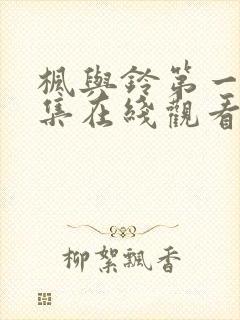 楓與鈴第一
集在綫觀看
柳絮飄香